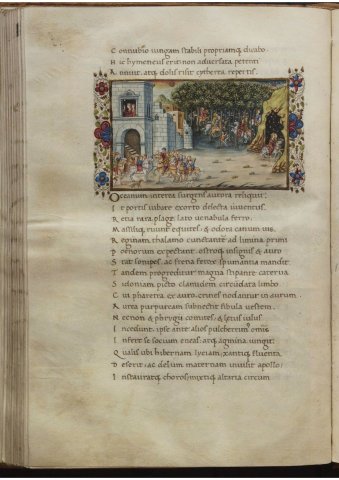 C onnubio iungam stabili propriamq; dicabo.
H ic hymeneus erit: non adversata petenti
A nnuit. atq; dolis risit cytherea repertis.
O ceanum interea surgens aurora reliquit:
I t portis iubare exorto delecta iuventus.
R etia rara. plagę. lato venabula ferro.
M assiliq; ruunt equites: & odora canum vis.
R eginam thalamo cunctantē ad limina primi
P oenorum expectant: ostroq; insignis & auro
S tat sonipes. ac frena ferox spumantia mandit.
T andem progreditur: magna stipante caterva
S idoniam picto clamidem circũdata limbo
C ui pharetra ex auro. crines nodantur in aurum.
A urea purpuream subnectit fibula vestem.
N ecnon & phrygii comites: & lętus iulus
I ncedunt. ipse ante alios pulcherrim⁹ omīs
I nfert se socium eneas: atq; agmina iungit:
Q ualis ubi hibernam lyciam. xantiq; fluenta
D eserit: ac delum maternam invisit apollo:
I nstauratq; choros: mixtiq; altaria circum